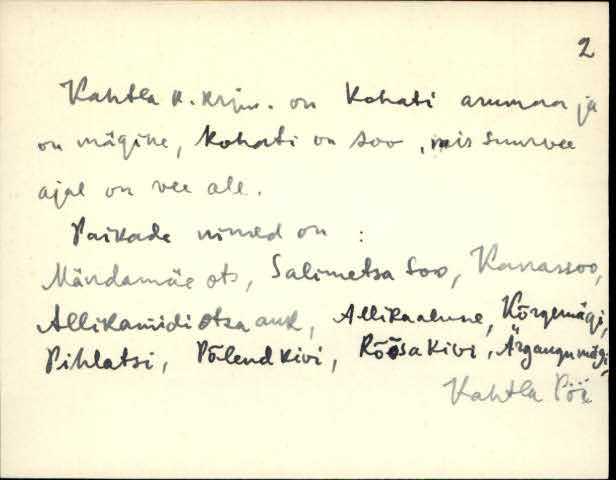 2
Kahtla k. krjm. on kohati arumaa ja
on mägine, kohati on soo, mis suurvee
ajal on vee all.
Paikade nimed on :
Mändamäe ots, Salimetsa soo, Kanassoo,
Allikamidi otsa auk, Allikaaluse, Kõrgemägi,
Pihlatsi, Põlend kivi, Rõõsa kivi, Ärgangu mägi,
Kahtla Pöi